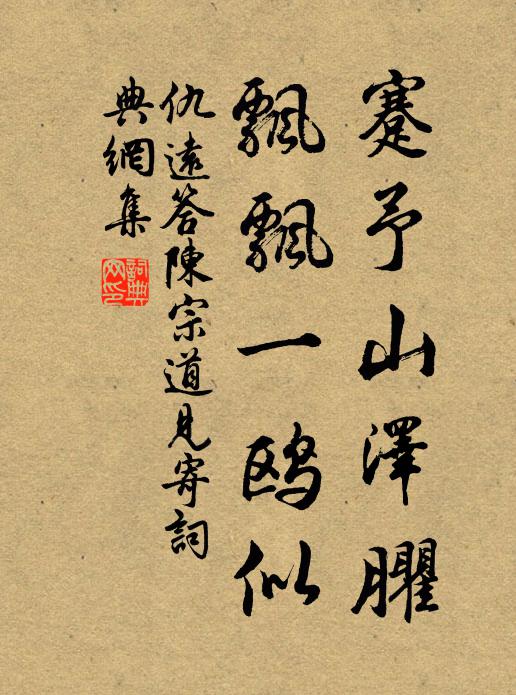 蹇予山澤臞
飄飄一鷗似
仇遠答陳宗道見寄詞
典網集
詞典
网印